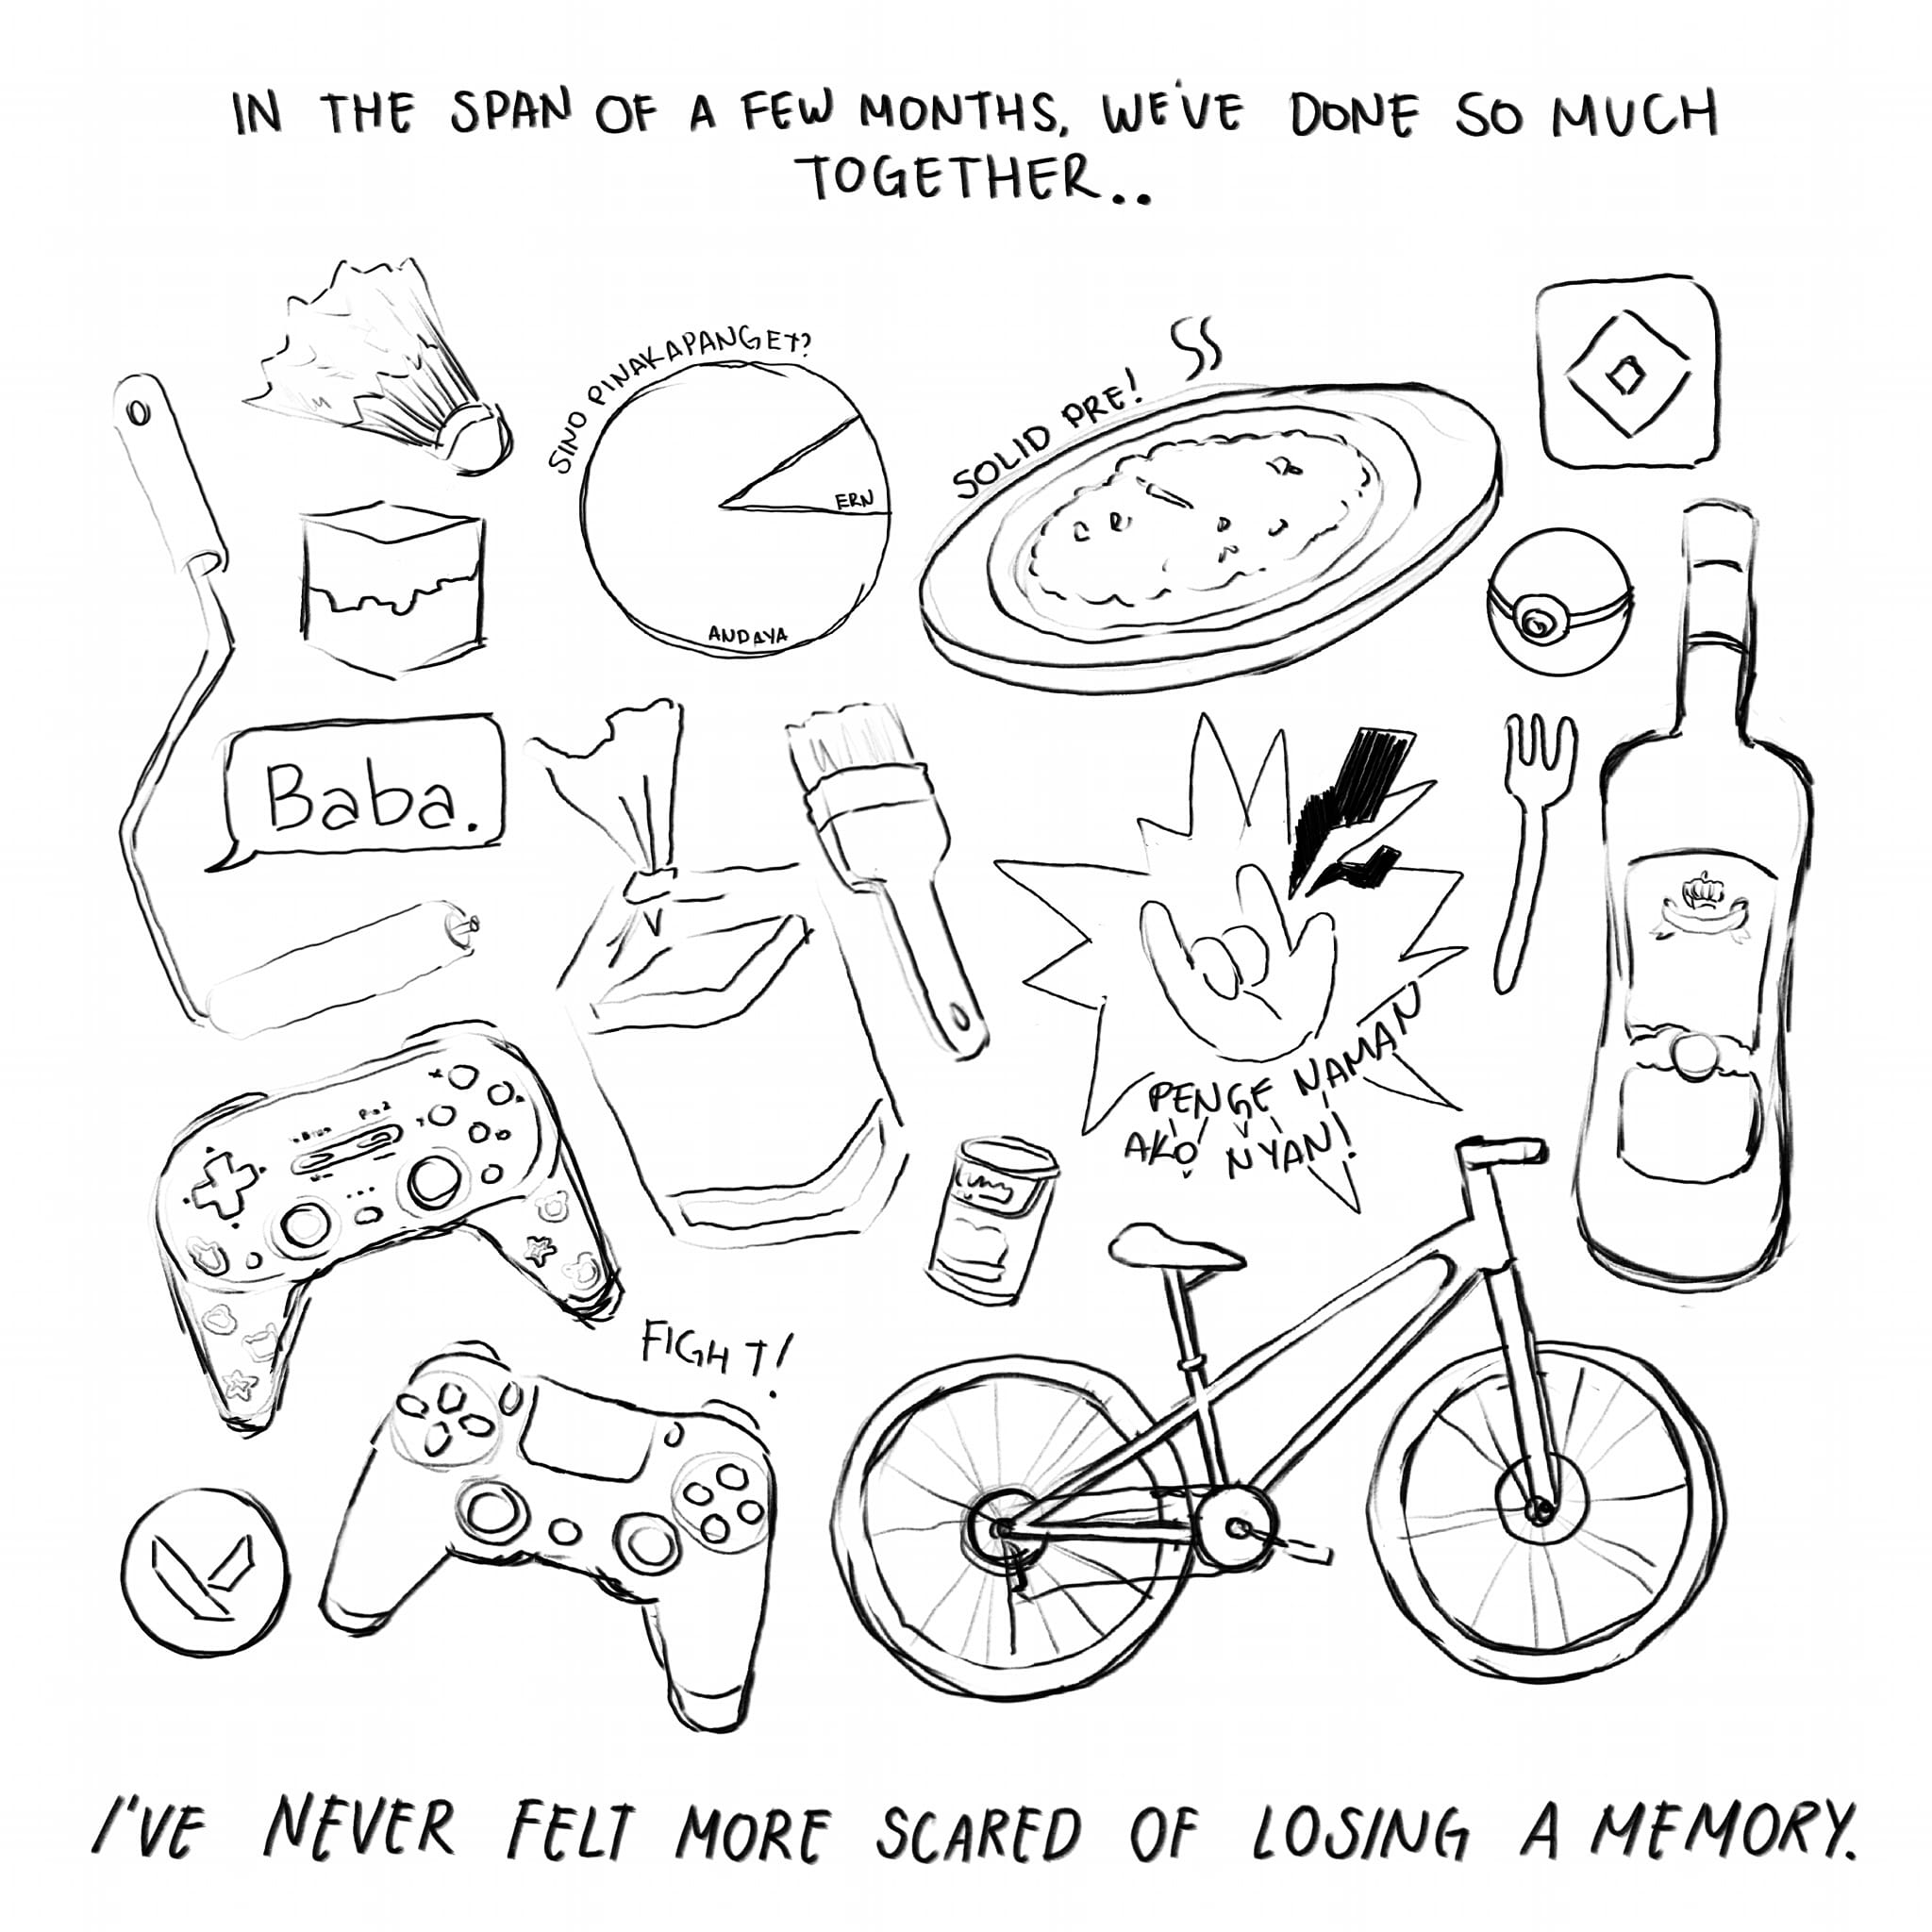 IN THE SPAN OF A FEW MONTHS, WE'VE DONE SO MUCH
TOGETHER..
SINO PINAKAPANGET?
ERN
ANDAYA
SOLID PRE!
Baba.
PENGE NAMAN
AKO NYAN!
FIGHT!
I'VE NEVER FELT MORE SCARED OF LOSING A MEMORY.